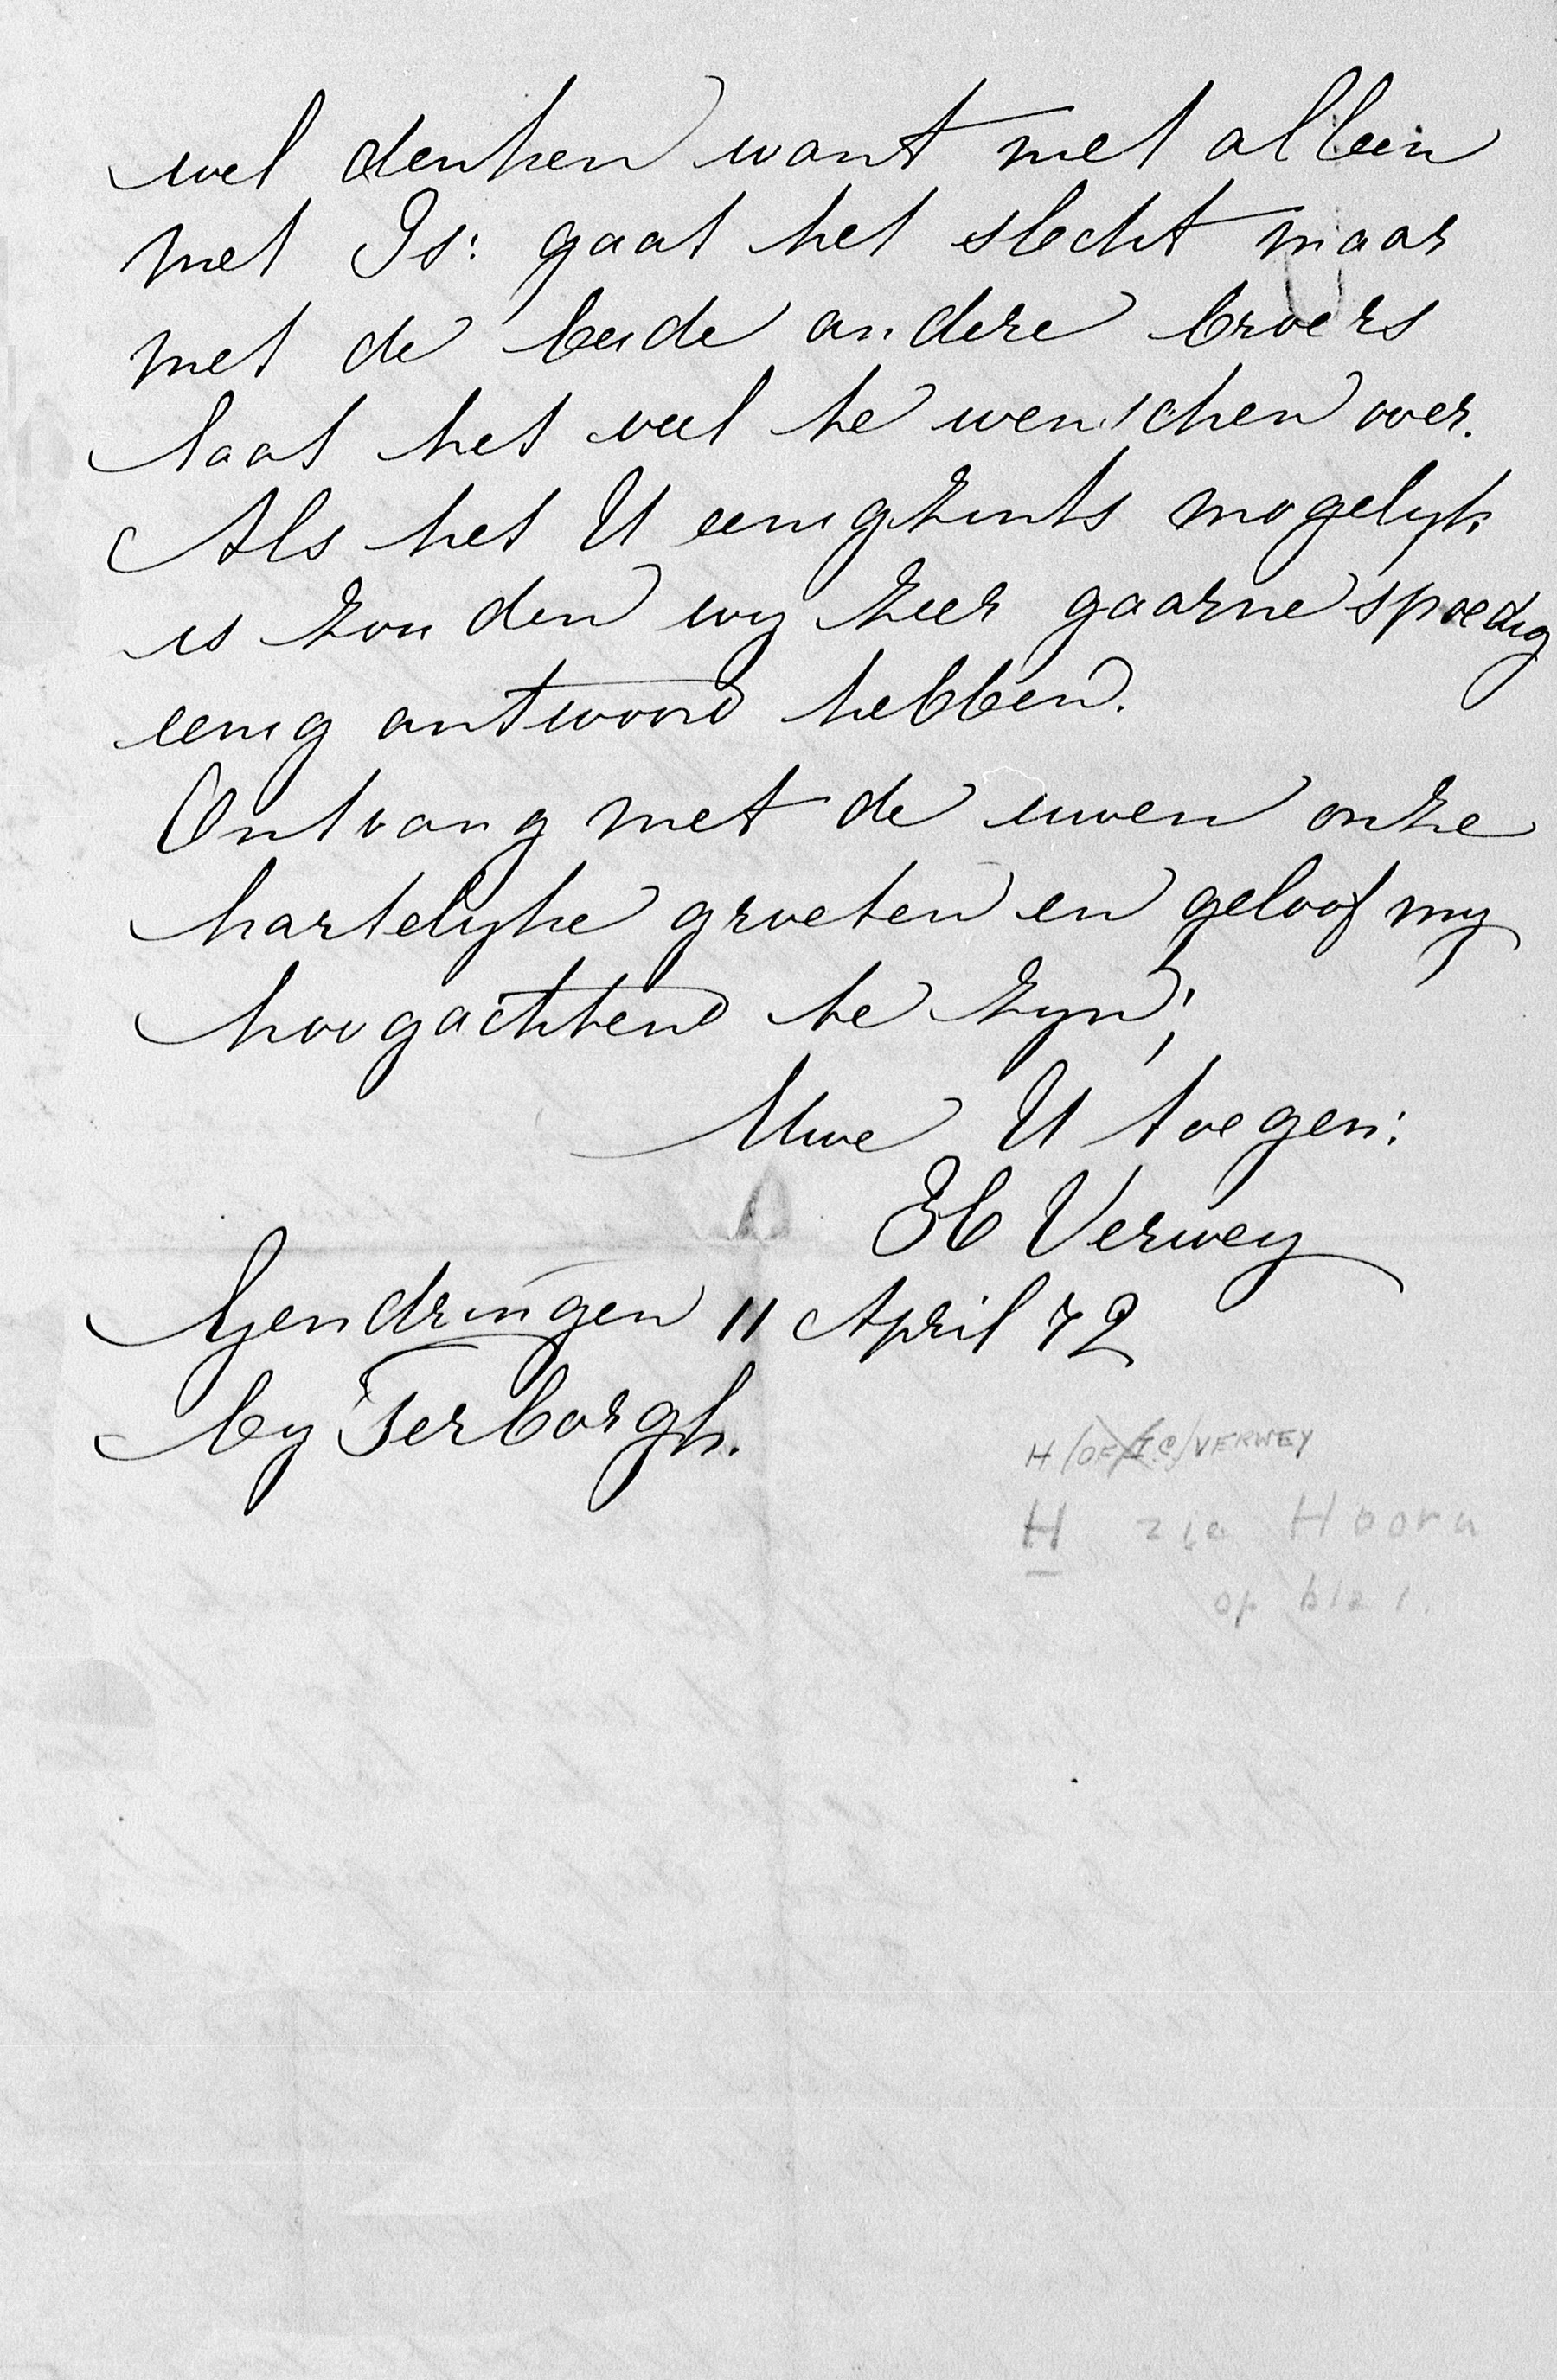 wel denken want niet alleen
met Is: gaat het slecht maar
met de beide andere broers
laat het veel te wenschen over.
Als het U eenigzints mogelyk
is zouden wy zeer gaarne spoedig
eenig antwoord hebben.
Ontvang met de uwen onze
hartelyke groeten en geloof my
hoogachtend te zyn;
Uwe U toegen:
H Verwey
Gendringen 11 April 72
by Terborgh.
H (OF I.C) VERWEY
H zie Hoorn
op blz 1.